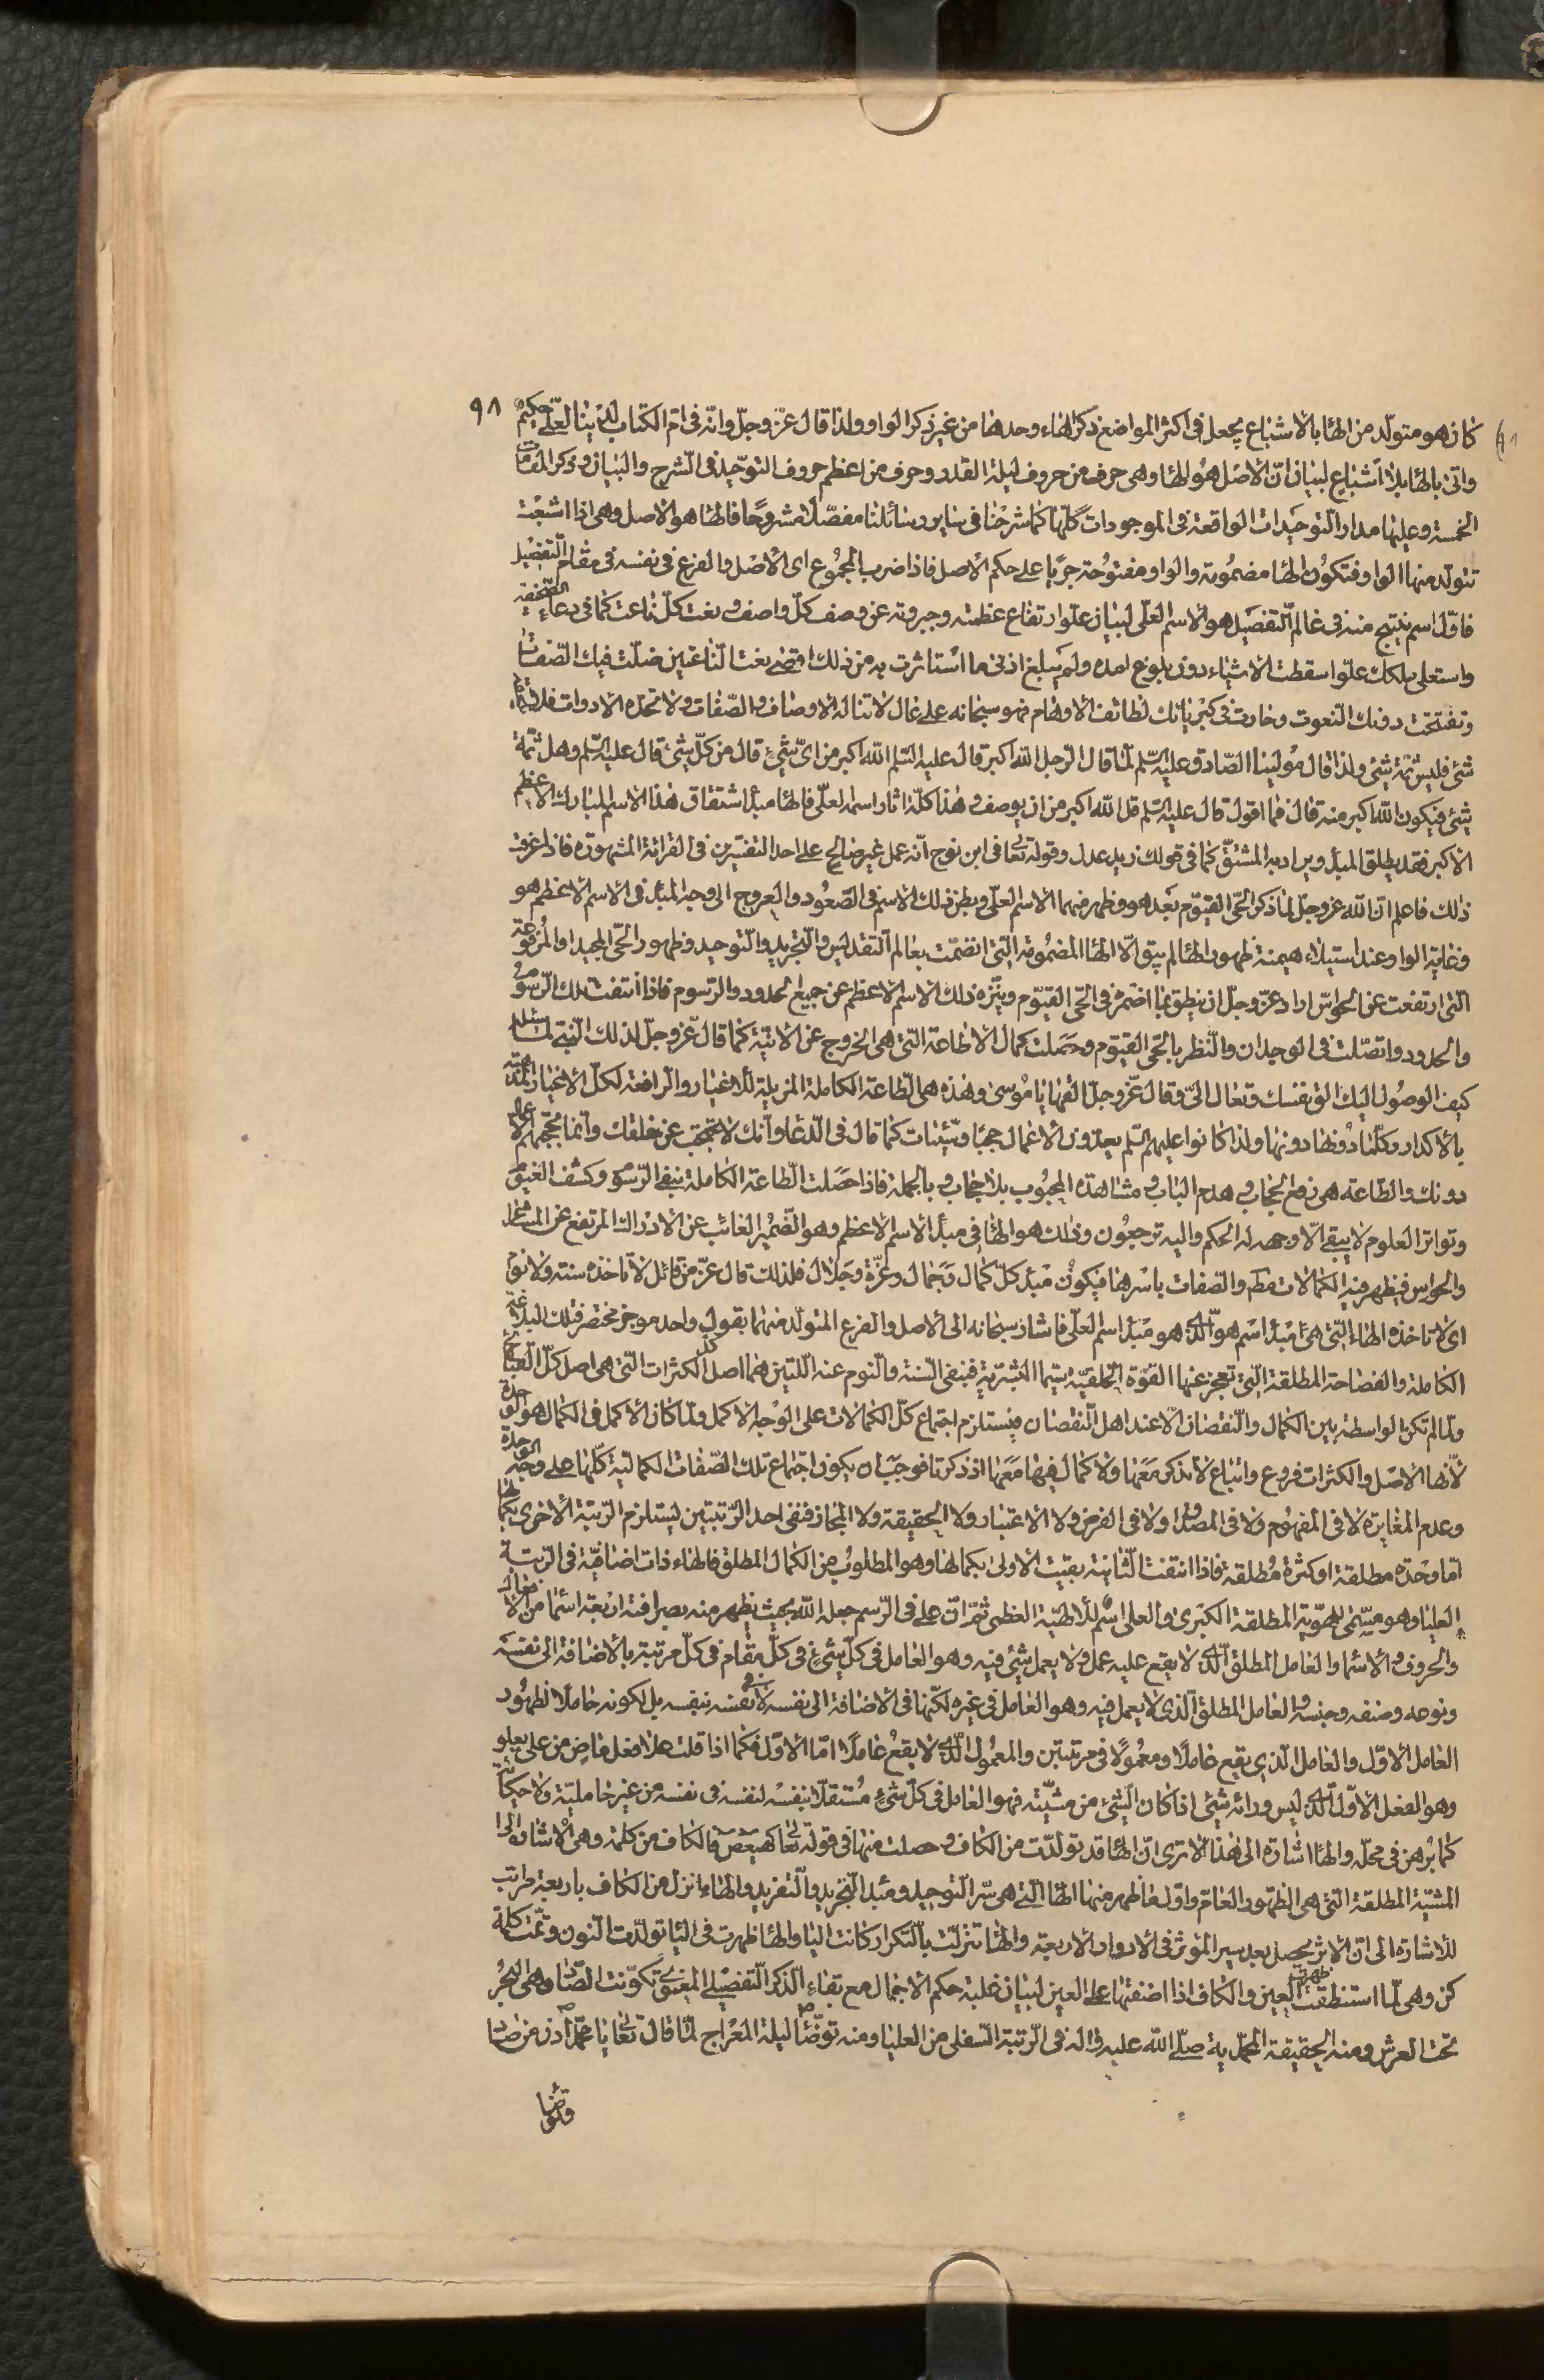 ٩٨
كان هو متولّد من الهاء بالاشباع يجعل فى اكثر المواضع ذكر الهاء وحدها من غير ذكر الواو ولذا قال عزّ وجلّ وانّه فى امّ الكتاب لدينا لعلىّ حكيم
واتى بالهاء بلا اشباع لبيان انّ الاصل هو الهاء وهى حرف من حروف ليلة القدر وحرف من اعظم حروف التوحيد فى الشرح والبيان وذكر المقامات
الخمسة وعليها مدار التوحيدات الواقعة فى الموجودات كلّها كما شرحنا فى ساير رسائلنا مفصّلا مشروحًا فالهاء هو الاصل وهى اذا اشبعت
تتولد منها الواو فتكون الهاء مضمومة والواو مفتوحة جريًا على حكم الاصل فاذا ضرب المجموع اى الاصل والفرع فى نفسه فى مقام التفضيل
فاوّل اسم ينتج منه فى عالم التفصيل هو الاسم العلىّ لبيان علوّ ارتفاع عظمته وجبروته عن وصف كلّ واصف ونعت كلّ ناعت كما فى دعاء الصحيفة
واستعلى ملكك علوّا سقطت الاشياء دون بلوغ امده ولم يبلغ ادنى ما استاثرت به من ذلك اقصى نعت الناعتين ضلّت فيك الصفات
وتفسّخت دونك النعوت وحارت فى كبريائك لطائف الاوهام فهو سبحانه على عال لا تناله الاوصاف والصّفات ولا تحدّه الادوات فلا
شئ فليس ثمّة شئ ولذا قال مولينا الصّادق عليه السّلم لمّا قال الرجل الله اكبر قال عليه السّلم الله اكبر من اىّ شئ قال من كلّ شئ قال عليه السّلم وهل ثمّة
شئ فيكون الله اكبر منه قال فما اقول قال عليه السّلم قل الله اكبر من ان يوصف وهذا كلّه اثار اسمه العلىّ فالهاء مبدأ اشتقاق هذا الاسم المبارك الاعظم
الاكبر فقد يطلق المبدأ ويراد به المشتقّ كما فى قولك زيد عدل وقوله تعالى فى ابن نوح انّه عمل غير صالح على احد التفسيرين فى القرائة المشهورة فاذا عرفت
ذلك فاعلم انّ الله عزّ وجلّ لمّا ذكر الحىّ القيّوم بعد هو وظهر منهما الاسم العلىّ وبطن ذلك الاسم فى الصّعود والعروج الى وجه المبدأ فى الاسم الاعظم هو
وغاية الواو وعند استيلاء هيمنة ظهور الهاء لم يبق الّا الهاء المضمومة الّتى انضمّت بعالم التقديس والتجريد والتوحيد وظهور الحىّ المجيد او المرفوعة
الّتى ارتفعت عن الحواسّ اراد عزّ وجلّ ان ينطق بما اضمره فى الحىّ القيّوم وينزّه ذلك الاسم الاعظم عن جميع الحدود والرّسوم فاذا انتفت تلك الرّسوم
والحدود واتصلت فى الوجدان والنّظر بالحىّ القيّوم وحصلت كمال الاطاعة التى هى الخروج عن الانّيّة كما قال عزّ وجلّ لذلك النبىّ لمّا سئله
كيف الوصول اليك الق نفسك وتعال الىّ وقال عزّ وجلّ القها يا موسى وهذه هى الطّاعة الكاملة المزيلة للاغيار والرافعة لكلّ الاغيار
بالاكدار وكلّما دونها ولذا كانوا عليهم السّلم يعدّون الاعمال حجبًا وسيّئات كما قال فى الدّعاء وانّك لا تحتجب عن خلقك وانّما تحجبهم الاعمال
دونك والطّاعة هى رفع الحجاب وهدم الباب ومشاهدة المحبوب بلا حجاب وبالجملة فاذا حصلت الطّاعة الكاملة بنفى الرّسوم وكشف الغيوم
وتواتر العلوم لا يبقى الّا وجهه له الحكم واليه ترجعون وذلك هو الهاء فى مبدأ الاسم الاعظم وهو الضّمير الغائب عن الادراك المرتفع عن المشاعر
والحواس فيظهر فيه الكمالات والصفات باسرها فيكون مبدأ كلّ كمال وجمال وعزّة وجلال فلذلك قال عزّ من قائل لا تاخذه سنة ولا نوم
اى لا تاخذه الهاء الّتى هى مبدأ اسم هو الّذى هو مبدأ اسم العلىّ فاشار سبحانه الى الاصل والفرع المتولّد منهما بقول واحد موجز مختصر فتلك البلاغة
الكاملة والفصاحة المطلقة الّتى تعجز عنها القوّة الخلقيّة سيّما البشريّة فبنفى السّنة والنّوم عنه اللّتين هما اصل كلّ الكثرات التى هى اصل كلّ القبائح
ولمّا لم تكن الواسطة بين الكمال والنّقصان الّا عند اهل النّقصان فيستلزم اجتماع كلّ الكمالات على الوجه الاكمل ولمّا كان الاكمل فى الكمال هو الوحدة
لأنّها الاصل والكثرات فروع واتباع لا يذكر معها ولا كمال فيها معها اذ ذكرتا فوجب ان يكون اجتماع تلك الصّفات الكماليّة كلّها على وجه الوحدة
وعدم المغايرة لا فى المفهوم ولا فى المصداق ولا فى الفرض ولا الاعتبار ولا الحقيقة ولا المجاز فنفى احد الرّتبتين يستلزم الرّتبة الاخرى بكمالها
امّا وحدة مطلقة او كثرة مطلقة فاذا انتفت الثّانية بقيت الاولى بكمالها وهو المطلوب من الكمال المطلق فالهاء ذات اضافيّة فى الرتبة
العليا وهو مسمّى للهويّة المطلقة الكبرى والعلى اسم للالهيّة العظمى ثمّ انّ على فى الرّسم جعله الله بحيث يظهر منه بصرافته اربعة اسماء من الافعال
والحروف والاسماء والعامل المطلق الّذى لا يقع عليه عمل ولا يعمل شئ فيه وهو العامل فى كلّ شئ فى كلّ مقام فى كلّ مرتبة بالاضافة الى نفسه
ونوعه وصنفه وجنسه والعامل المطلق الّذى لا يعمل فيه وهو العامل فى غيره لكنّها فى الاضافة الى نفسه لا فى نفسه بنفسه بل لكونه حاملا لظهور
العامل الاوّل والعامل الّذى يقع عاملًا ومعمولًا فى مرتبتين والمعمول الّذى لا يقع عاملًا امّا الاوّل فكما اذا قلت هذا فعل ماضٍ من على يعلو
وهو الفعل الاوّل الّذى ليس ورائه شئ اذا كان الشّئ من مشيّته فهو العامل فى كلّ شئ مستقلّا بنفسه لنفسه فى نفسه من غير حامليّة ولا حكاية
كما برهن فى محلّه والهاء اشارة الى هذا الا ترى انّ الهاء قد تولّدت من الكاف وحصلت منها فى قوله تعالى كهيعص فالكاف من كلمة وهى الاشارة الى
المشيّة المطلقة التى هى الظّهور العامّ واوّل ما ظهر منها الهاء الّتى هى سرّ التوحيد ومبدأ التّجريد والتّفريد والهاء انزل من الكاف باربعة مراتب
للاشارة الى انّ الاثر يحصل بعد سير المؤثر فى الادوار الاربعة والهاء تنزّلت بالتكرار كانت الياء والهاء ظهرت فى الياء تولّدت النّون وتمّت كلمة
كن وهى لمّا استنطقت ظهرت العين والكاف اذا اضفتها على العين لبيان غلبة حكم الاجمال مع بقاء الذّكر التفصيلى تكوّنت الصّاد وهى البحر
تحت العرش ومنه الحقيقة المحمّديّة صلّى الله عليه واله فى الرّتبة السّفلى من العليا ومنه توضّأ ليلة المعراج لمّا قال تعالى يا محمّد ادن من صاد
وتوضّأ